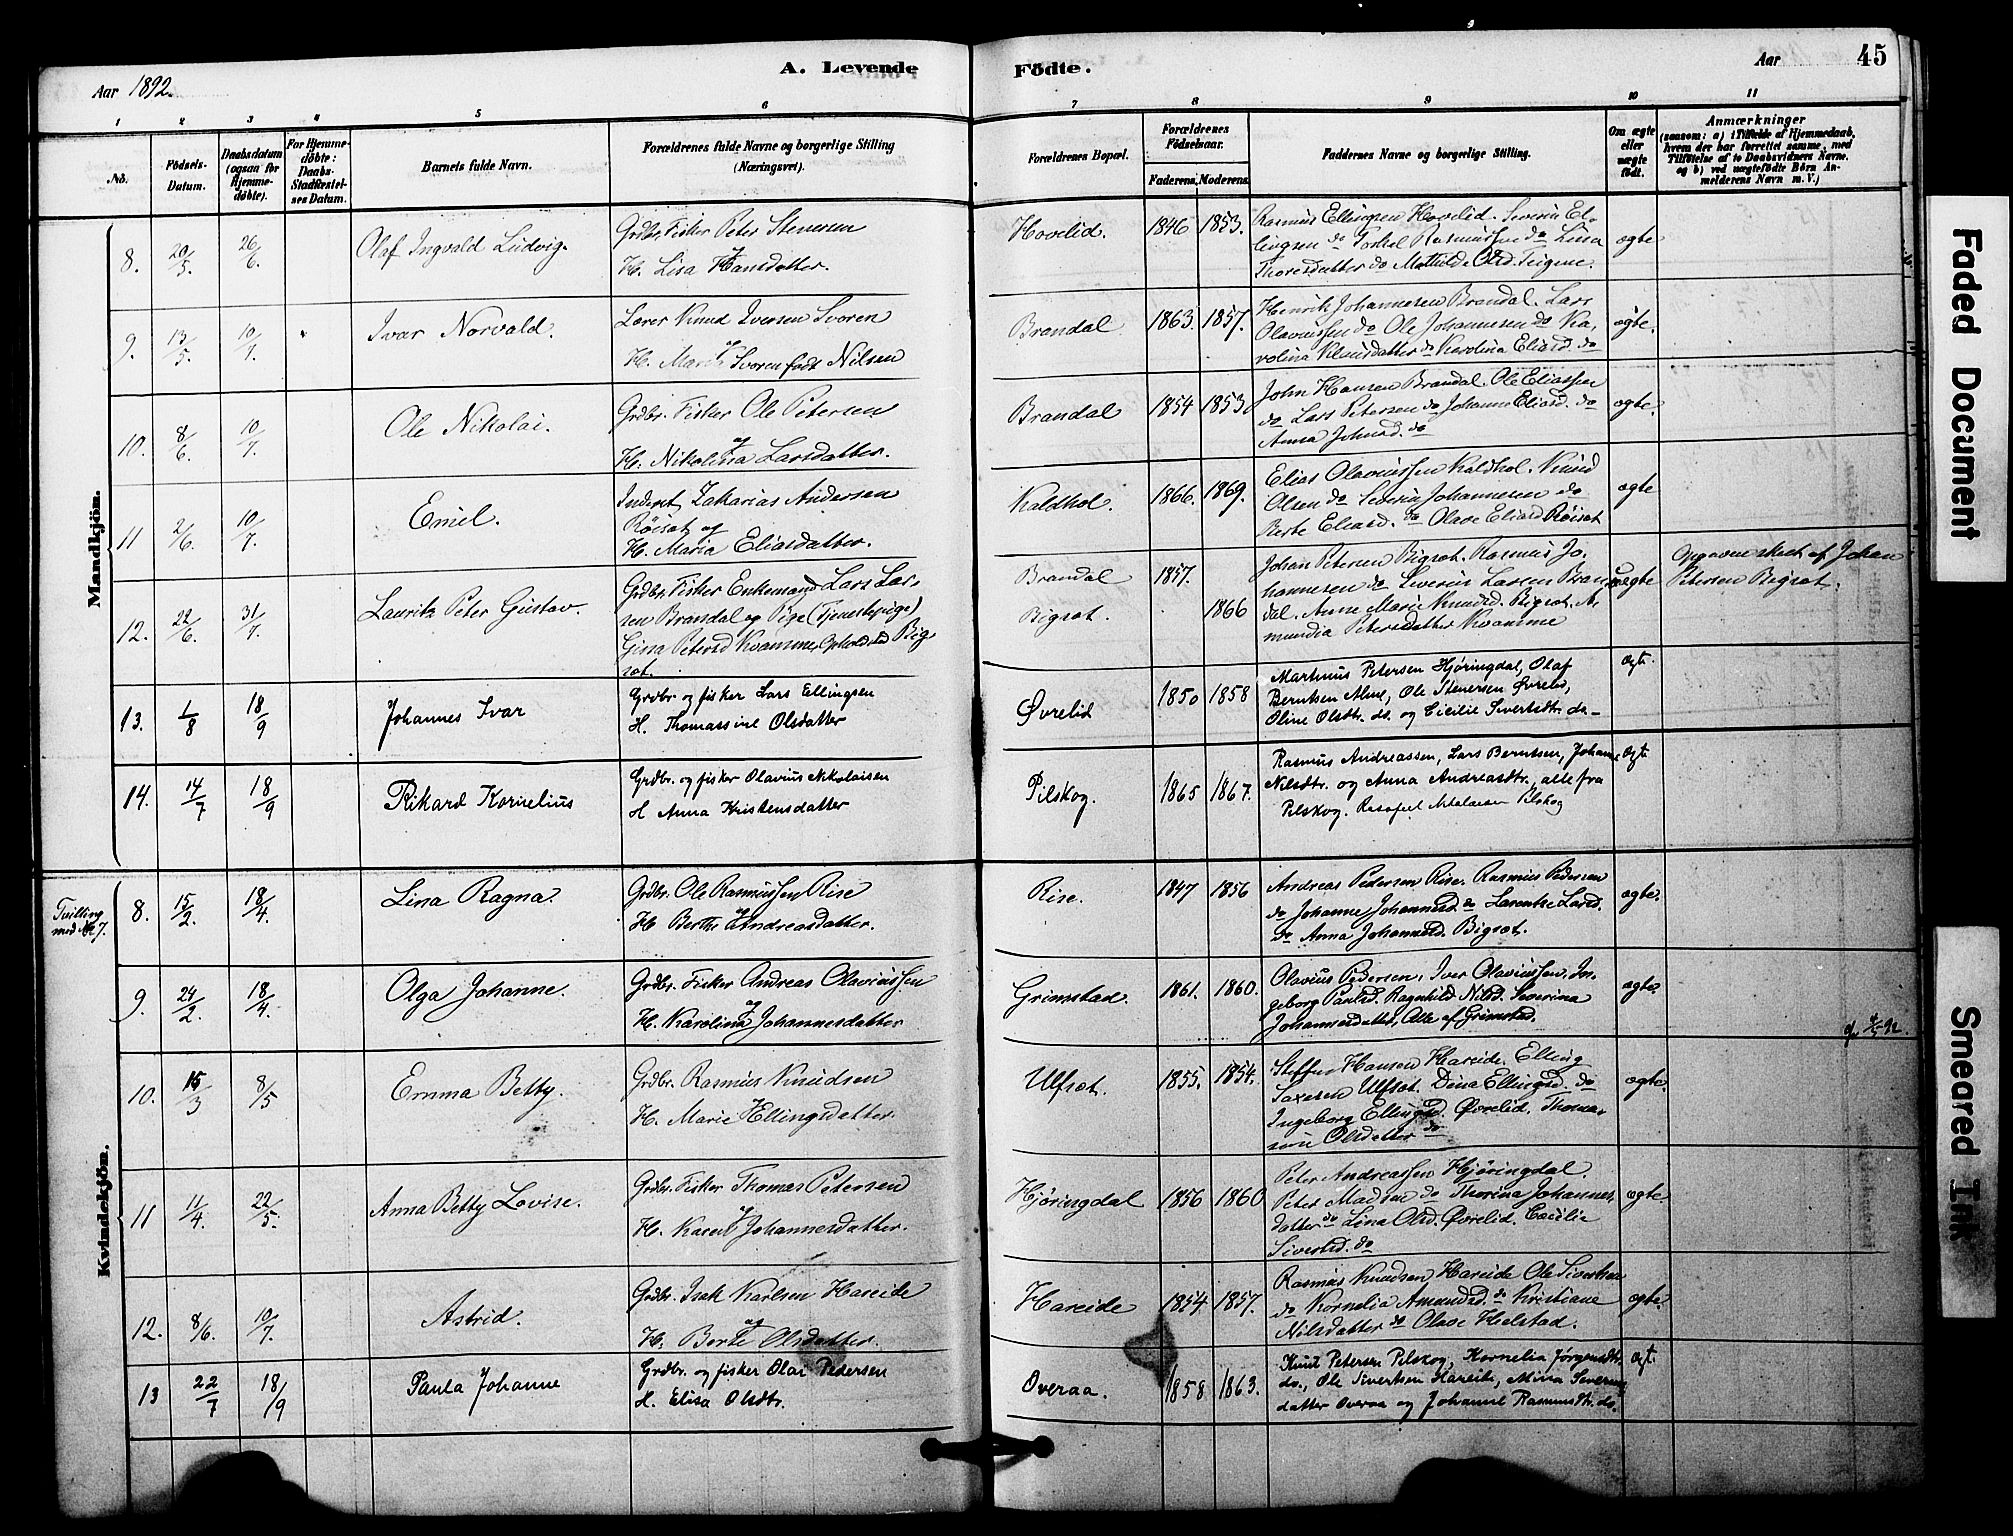 A. Levende Födte.
Aar 1892.
Aar
45
1 2 3 4 5 6 7 8 9 10 11
No.
Födsels-Datum.
Daabsdatum (ogsaa for Hjemme-döbte).
For Hjemme-döbte: Daabs-Stadfæstel-ses Datum.
Barnets fulde Navn.
Forældrenes fulde Navne og borgerlige Stilling (Næringsvei).
Forældrenes Bopæl.
Forældrenes Födselsaar.
Faderens. Moderens.
Faddernes Navne og borgerlige Stilling.
Om ægte eller uægte födt.
Anmærkninger
(saasom: a) i Tilfælde af Hjemmedaab, hvem der har forrettet samme, med Tilföielse af to Daabsvidners Navne. og b) ved uægtefödte Börn An-melderens Navn m. V.)
Mandkjön.
8. 20/5. 26/6. Olaf Ingvald Ludvig.
Grdbr. Fisker Peter Stenersen
og
H. Lisa Hansdatter.
Hovelid. 1846 1853.
Rasmus Ellingsen Hovelid. Severin El-
lingsen do Torkel Rasmussen do Lina
Thoresdatter do Mathilde Olsd. Teigene.
ægte
9. 13/5. 10/7. " Ivar Norvald.
Lærer Knud Iversen Svoren
og
H. Marie Svoren født Nilsen
Brandal 1863. 1857.
Henrik Johannesen Brandal. Lars
Olaviussen do Ole Johannesen do Ka-
rolina Nilsdatter do Karolina Eliasd. do
ægte.
10. 8/6. 10/7. Ole Nikolai.
Grdbr. Fisker Ole Petersen
og
H. Nikolina Larsdatter.
Brandal 1854 1853
John Hansen Brandal. Ole Eliassen
do Lars Petersen do Johanne Eliasd. do
Anna Johnsd. do
ægte.
11 26/6. 10/7. Emil.
Inderst Zakarias Andersen
Röisat og
H. Marie Eliasdatter.
Kaldhol. 1866. 1869.
Elias Olaviussen Kaldhol. Knud
Olsen do Severin Johannesen do
Berte Eliasd. do Olave Eliasd Röisat
ægte
12. 22/6. 31/7. Lauritz Peter Gustav.
Grdbr. Fisker Enkemand Lars Lar-
sen Brandal og Pige (Tjenestepige)
Gina Petersd Kvamme, Opholdsted Big-
sat.
Brandal 1857.
Bigsat. 1866
Johan Petersen Bigsat. Rasmus Jo-
hannesen do Severin Larsen Bran-
dal. Anne Marie Knudsd. Bigsat. A-
mundia Petersdatter Kvamme
uægte
Opgavene skeet af Johan
Petersen Bigsat.
13. 1/8 18/9 Johannes Ivar
Grdbr. og fisker Lars Ellingsen
H. Thomassine Olsdatter
Øvrelid 1850 1858
Martinus Petersen Hjøringdal, Olaf
Berntsen Alme, Ole Stenersen Øvrelid,
Oline Olsdtr. do. og Cicilie Sivertsdtr. do-
ægt.
14. 14/7 18/9 Rikard Kornelius
Grdbr. og fisker Olavius Nikolaisen
H Anna Kristensdatter
Pilskog. 1865 1867.
Rasmus Andreassen, Lars Berntsen, Johanne
Nilsdtr. og Anna Andreasdtr., alle fra
Pilskog.
Pilskog
ægt.
Kvindekjön.
Tvilling
med No 7.
8. 15/2. 18/4. Lina Ragna.
Grdbr. Ole Rasmussen Rise
og
H Berthe Andreasdatter.
Rise. 1847 1856
Andreas Pedersen Rise. Rasmus Pedersen
do Johanne Johannesd. do Larentse Larsd.
do Anna Johannesd. Bigsat.
ægte.
9. 24/2. 18/4. Olga Johanne.
Grdbr. Fisker Andreas Olaviussen
og
H. Karolina Johannesdatter
Grimstad 1861. 1860.
Olavius Pedersen, Iver Olaviussen, In-
geborg Paulsd. Ragnhild Nilsd. Severina
Johannesdatter, Alle af Grimstad.
ægte.
10. 15/3 8/5 Emma Betty.
Grdbr. Rasmus Knudsen
H. Marie Ellingsdatter
Ulfsat. 1855. 1854.
Steffen Hansen Hareide. Elling
Saxesen Ulfsat. Dina Ellingsd. do
Ingeborg Ellingsd. Øvrelid. Thomas-
sine Olsdatter do
ægte.
11 11/4. 22/5. Anna Betty Lovise.
Grdbr. Fisker Thomas Petersen
og
H. Karen Johannesdatter.
Hjøringdal 1856 1860
Peter Andreassen Hjøringdal.
Peter Madsen do Thorina Johannes-
datter do Lina Olsd. Øvrelid. Cecilie
Sivertsd. do
ægte.
12. 8/6. 10/7. Astrid.
Grdbr. Isak Karlsen Hareide
og
H. Berte Olsdatter.
Hareide 1854 1857.
Rasmus Knudsen Hareide Ole Sivertsen
do Kornelia Amundsd. do Kristiane
Nilsdatter do Olave Helstad.
ægte.
13 22/7 18/9 Paula Johanne
Grdbr. og fisker Olai Pedersen
H. Elisa Olsdtr.
Overaa. 1858 1863.
Knut Petersen Pilskog, Kornelia Jørgensdtr.
do., Ole Sivertsen Hareide, Mina Severins
datter Overaa og Johanne Rasmusdtr. do.
ægt.
Faded Document
Smeared Ink